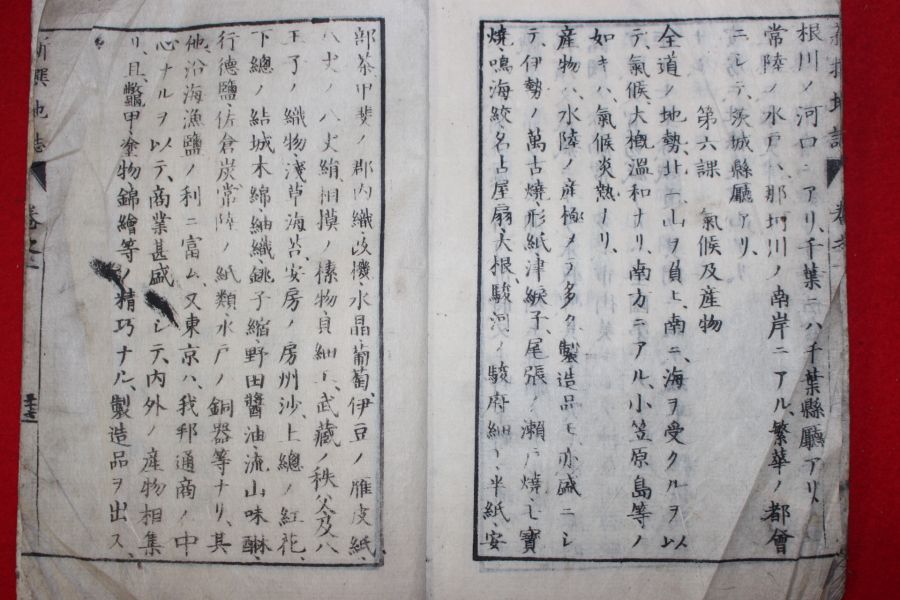 根川ノ河口ニアリ、千葉ニハ千葉縣廳アリ、
常陸ノ水戸ハ、那珂川ノ南岸ニアル、繁華ノ都會
ニシテ、茨城縣廳アリ、
第六課 氣候及産物
全道ノ地勢北ニ、山ヲ負ヒ、南ニ、海ヲ受クルヲ以
テ、氣候、大概溫和ナリ、南方ニアル、小笠原島等ノ
如キハ、氣候炎熱ノリ、
産物ハ、水陸ノ産極メヲ多ク、製造品モ、亦盛ニシ
テ、伊勢ノ萬古燒、形紙、津綟子、尾張ノ瀬戸燒、七寶
燒、鳴海絞、名古屋扇、大根、駿河ノ駿府細工、半紙、安
部茶、甲斐ノ郡内織、改機、水晶、葡萄、伊豆ノ雁皮紙、
八丈ノ八丈絹、相摸ノ湊物貝細工、武藏ノ秩父及八
王子ノ織物、淺草海苔、安房ノ房州沙、上總ノ紅花、
下總ノ結城木綿、紬織、銚子縮、野田醬油、流山味醂、
行德鹽、佐倉炭、常陸ノ紙類、水戸ノ銅器等ナリ、其
他、沿海漁鹽ノ利ニ富ム、又東京ハ、我邦通商ノ中
心ナルヲ以テ、商業甚盛ニシテ、内外ノ産物相集
リ、且、鼈甲、塗物、錦繪等ノ精巧ナル、製造品ヲ出ス、
新撰地誌 卷之二